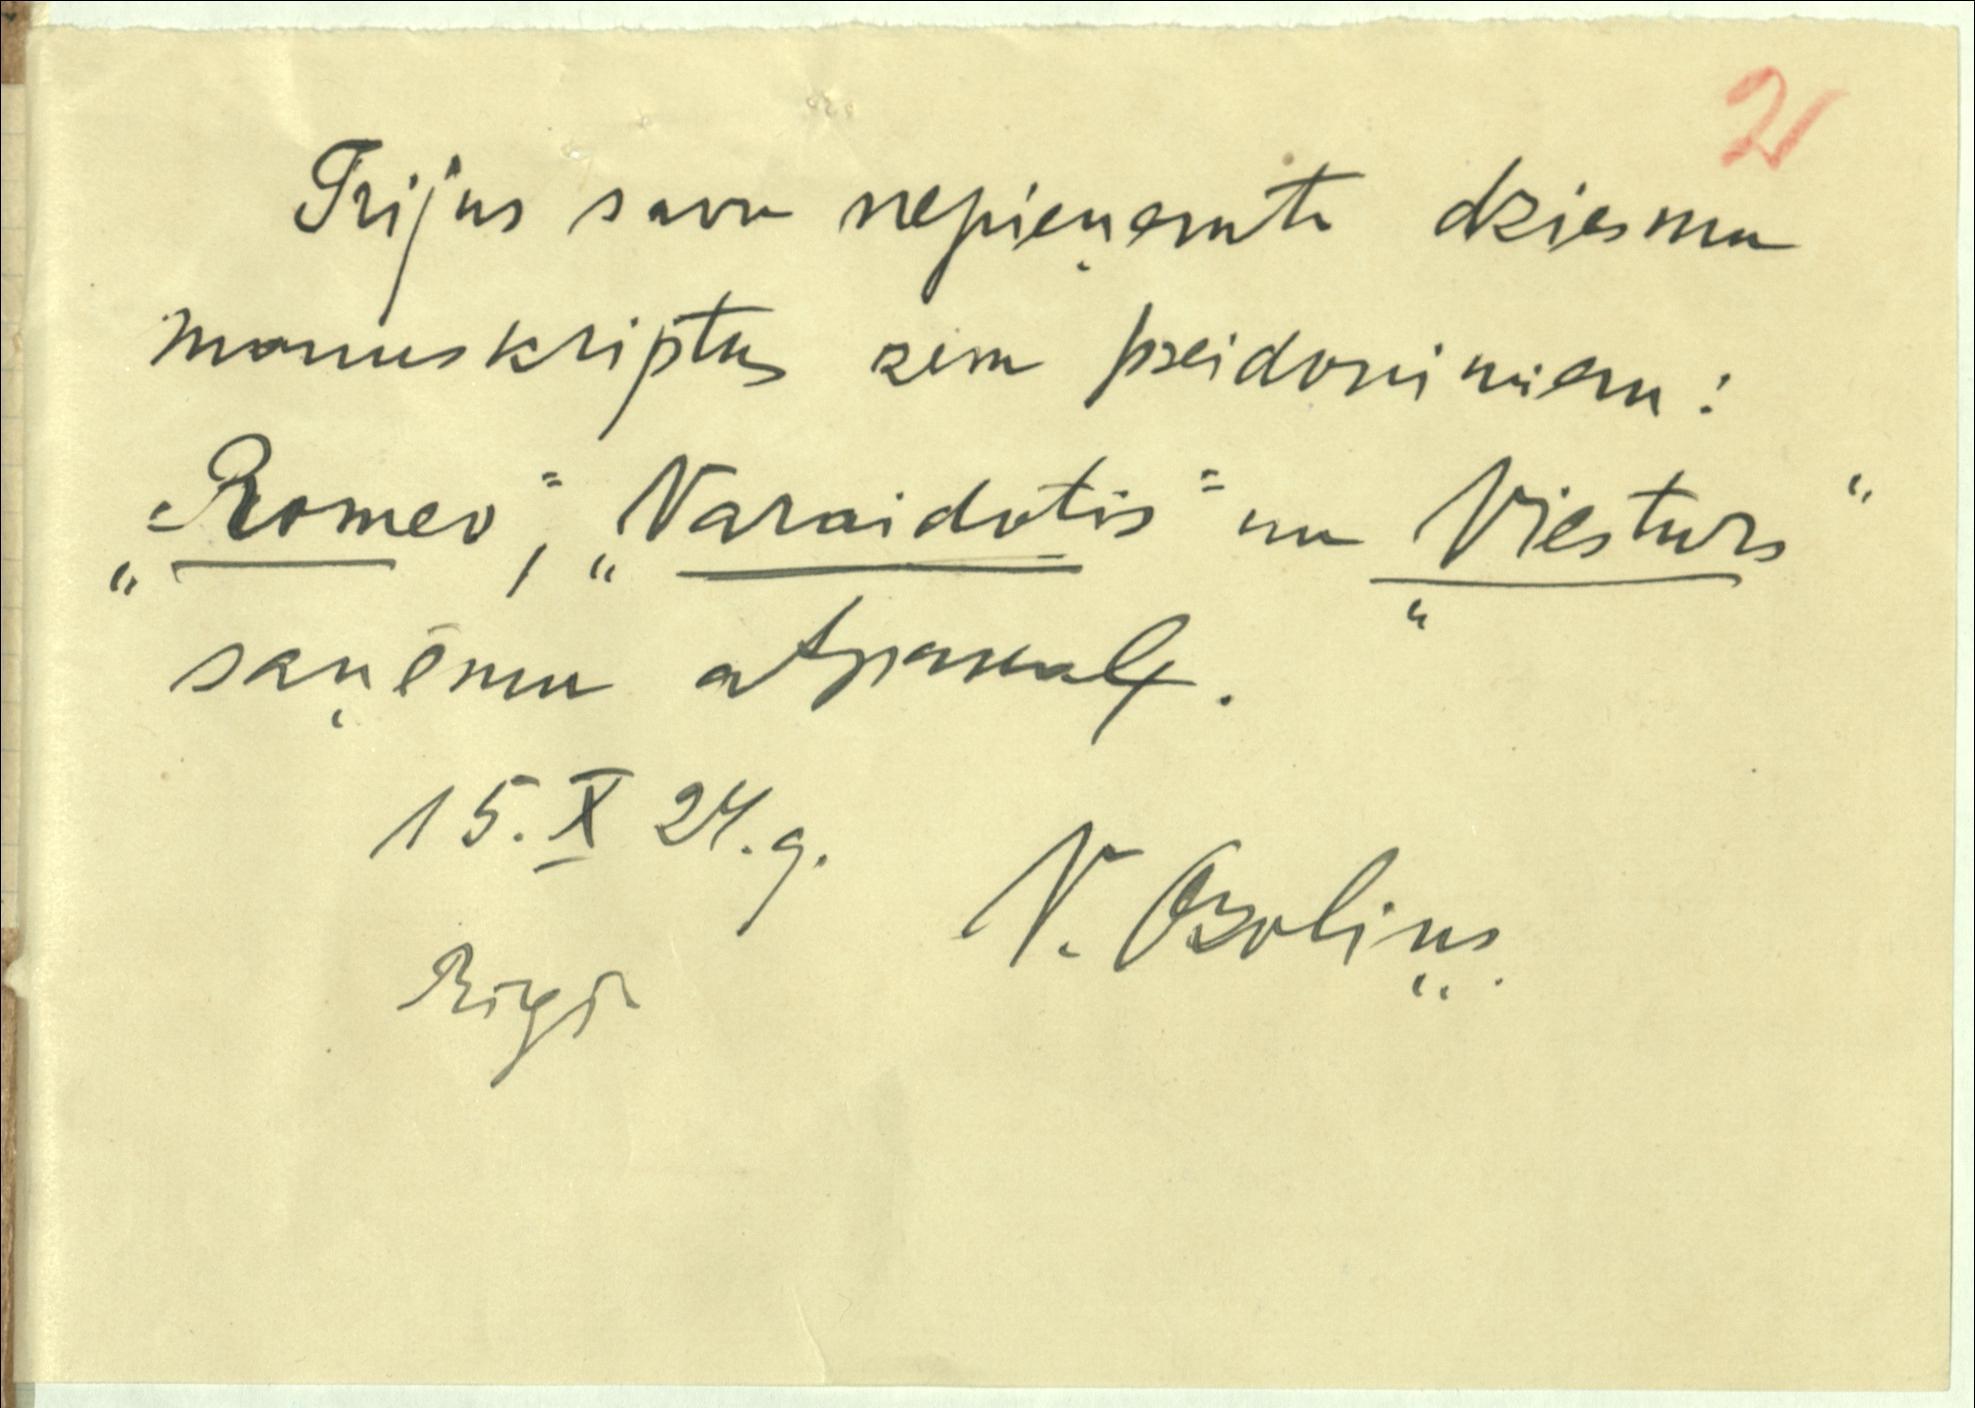 21
Trijus savu nepieņemtu dziesmu
manuskriptus zem pseidonimiem:
„Romeo“, „Varaidotis“ un „Viesturs“
saņēmu atpakaļ.
15. X 24. g. V. Ozoliņš.
Rīgā